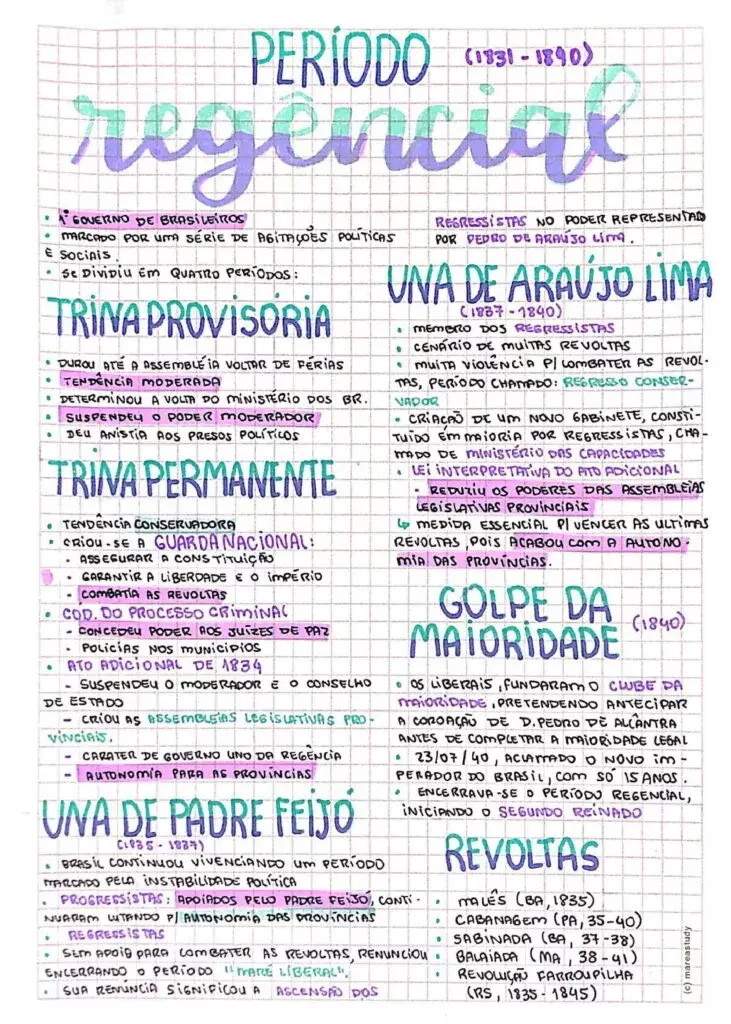 PERÍODO (1831 - 1840)
regêncial
• 1º GOVERNO DE BRASILEIROS
• MARCADO POR UMA SÉRIE DE AGITAÇÕES POLÍTICAS
E SOCIAIS.
• SE DIVIDIU EM QUATRO PERÍODOS:
TRINA PROVISÓRIA
• DUROU ATÉ A ASSEMBLÉIA VOLTAR DE FÉRIAS
• TENDÊNCIA MODERADA
• DETERMINOU A VOLTA DO MINISTÉRIO DOS BR.
• SUSPENDEU O PODER MODERADOR
• DEU ANISTIA AOS PRESOS POLÍTICOS
TRINA PERMANENTE
• TENDÊNCIA CONSERVADORA
• CRIOU-SE A GUARDA NACIONAL:
• ASSEGURAR A CONSTITUIÇÃO
• GARANTIR A LIBERDADE E O IMPÉRIO
• COMBATIA AS REVOLTAS
• CÓD. DO PROCESSO CRIMINAL
- CONCEDEU PODER AOS JUÍZES DE PAZ
- POLÍCIAS NOS MUNICÍPIOS
• ATO ADICIONAL DE 1834
- SUSPENDEU O MODERADOR E O CONSELHO
DE ESTADO
- CRIOU AS ASSEMBLEIAS LEGISLATIVAS PRO-
VINCIAIS.
- CARATER DE GOVERNO UNO DA REGÊNCIA
- AUTONOMIA PARA AS PROVÍNCIAS
UNA DE PADRE FEIJÓ
(1835 - 1837)
• BRASIL CONTINUOU VIVENCIANDO UM PERÍODO
MARCADO PELA INSTABILIDADE POLÍTICA
• PROGRESSISTAS: APOIADOS PELO PADRE FEIJÓ, CONTI-
NUARAM LUTANDO P/ AUTONOMIA DAS PROVÍNCIAS
• REGRESSISTAS
• SEM APOIO PARA COMBATER AS REVOLTAS, RENUNCIOU
ENCERRANDO O PERÍODO "MARÉ LIBERAL".
• SUA RENÚNCIA SIGNIFICOU A ASCENSÃO DOS
REGRESSISTAS NO PODER REPRESENTADO
POR PEDRO DE ARAÚJO LIMA.
UNA DE ARAÚJO LIMA
(1837 - 1840)
• MEMBRO DOS REGRESSISTAS
• CENÁRIO DE MUITAS REVOLTAS
• MUITA VIOLÊNCIA P/ COMBATER AS REVOL-
TAS, PERÍODO CHAMADO: REGRESSO CONSER-
VADOR
• CRIAÇÃO DE UM NOVO GABINETE, CONSTI-
TUÍDO EM MAIORIA POR REGRESSISTAS, CHA-
MADO DE MINISTÉRIO DAS CAPACIDADES
• LEI INTERPRETATIVA DO ATO ADICIONAL
- REDUZIU OS PODERES DAS ASSEMBLEIAS
LEGISLATIVAS PROVINCIAIS
↳ MEDIDA ESSENCIAL P/ VENCER AS ULTIMAS
REVOLTAS, POIS ACABOU COM A AUTONO-
MIA DAS PROVÍNCIAS.
GOLPE DA
MAIORIDADE (1840)
• OS LIBERAIS, FUNDARAM O CLUBE DA
MAIORIDADE, PRETENDENDO ANTECIPAR
A COROAÇÃO DE D. PEDRO DE ALCÂNTRA
ANTES DE COMPLETAR A MAIORIDADE LEGAL
• 23/07/40, ACLAMADO O NOVO IM-
PERADOR DO BRASIL, COM SÓ 15 ANOS.
• ENCERRAVA-SE O PERÍODO REGENCIAL,
INICIANDO O SEGUNDO REINADO
REVOLTAS
• MALÊS (BA, 1835)
• CABANAGEM (PA, 35-40)
• SABINADA (BA, 37-38)
• BALAIADA (MA, 38-41)
• REVOLUÇÃO FARROUPILHA
(RS, 1835 - 1845)
(c) mareastudy